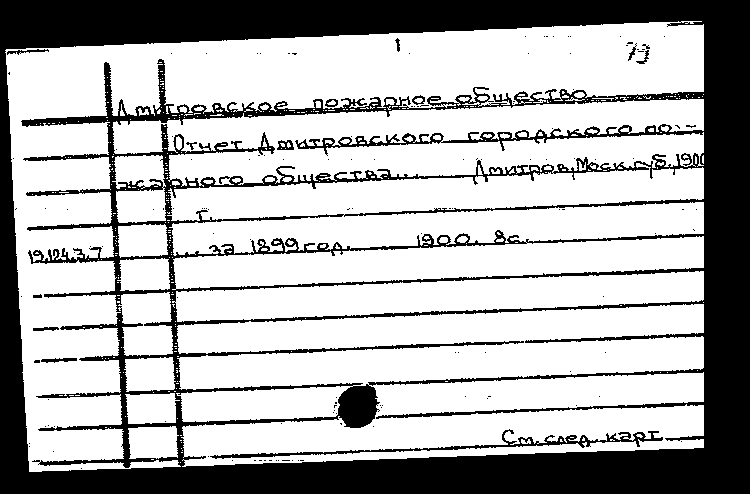 1
79
Дмитровское пожарное общество.
Отчет Дмитровского городского по-
жарного общества... Дмитров, Моск. губ., 1900
г.
19.124.3.7 ... за 1899 год. 1900. 8с.
См. след. карт.